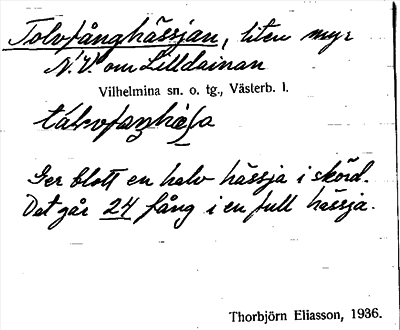 Tolvfånghässjan, liten myr
N.V. om Lilldainan
Vilhelmina sn. o. tg., Västerb. l.
Ger blott en halv hässja i skörd.
Det går 24 fång i en full hässja.
Thorbjörn Eliasson, 1936.